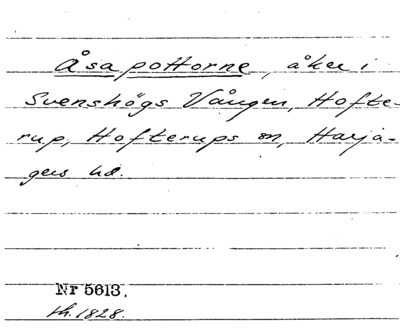 Åsapottorne, åker i
Svenshögs Vången, Hofte-
rup, Hofterups sn, Harja-
gers hd.
Nr 5613.
th. 1828.